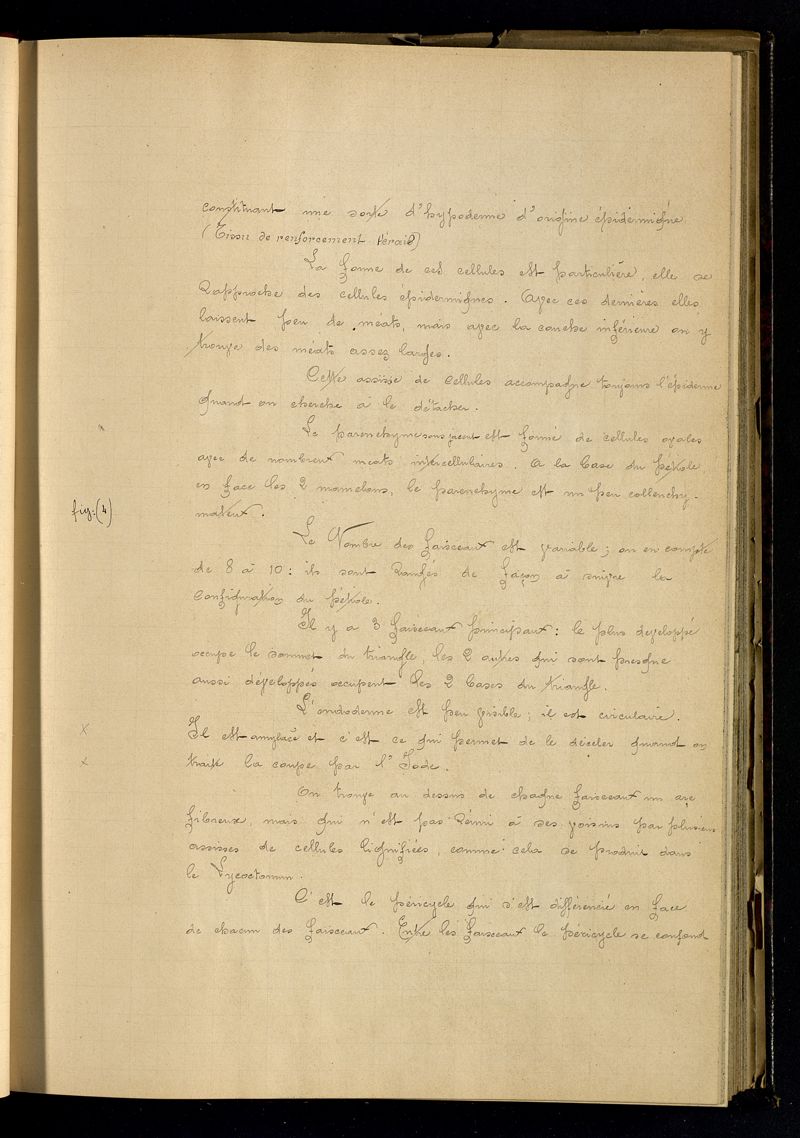 constituant une sorte d'hypoderme d'origine épidermique
(Tissu de renforcement Hérail)
La forme de ces cellules est particulière, elle se
Rapproche des cellules épidermiques. Avec ces dernières elles
laissent peu de méats, mais avec la couche inférieure on y
trouve des méats assez larges.
Cette assise de cellules accompagne toujours l'épiderme
quand on cherche à le détacher.
Le parenchyme sous jacent est formé de cellules ovales
avec de nombreux méats intercellulaires. A la base du pétiole,
en face les 2 mamelons, le parenchyme est un peu collenchy-
fig:(4)
mateux.
Le Nombre des faisceaux est variable; on en compte
de 8 à 10: ils sont Rangés de façon à suivre la
Configuration du pétiole.
Il y a 3 faisceaux principaux: le plus développé
occupe le sommet du triangle, les 2 autres qui sont presque
aussi développés occupent les 2 bases du triangle.
L'endoderme est peu visible; il est circulaire.
X Il est amylacé et c'est ce qui permet de le déceler quand on
x traite la coupe par l'Iode.
On trouve au dessus de chaque faisceaux un arc
fibreux, mais qui n'est pas Réuni à ses voisins par plusieurs
assises de cellules lignifiées, comme cela se produit dans
le Lycoctonum.
C'est le péricycle qui s'est différencié en face
de chacun des faisceaux. Entre les faisceaux le péricycle se confond